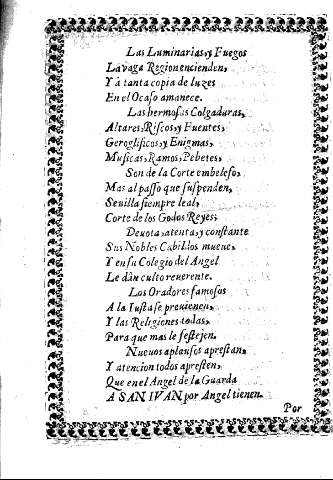 Las Luminarias, y Fuegos
La vaga Region encienden,
Y à tanta copia de luzes
En el Ocaso amanece.
Las hermosas Colgaduras,
Altares, Riscos, y Fuentes,
Geroglificos, y Enigmas,
Musicas, Ramos, Pebetes,
Son de la Corte embeleso,
Mas al passo que suspenden,
Sevilla siempre leal,
Corte de los Godos Reyes;
Devota, atenta, y constante
Sus Nobles Cabildos mueve,
Y en su Colegio del Angel
Le dàn culto reverente.
Los Oradores famosos
A la Iusta se previenen,
Y las Religiones todas,
Para que mas le festejen.
Nuevos aplausos aprestan,
Y atencion todos apresten,
Que en el Angel de la Guarda
A SAN IVAN por Angel tienen.
Por